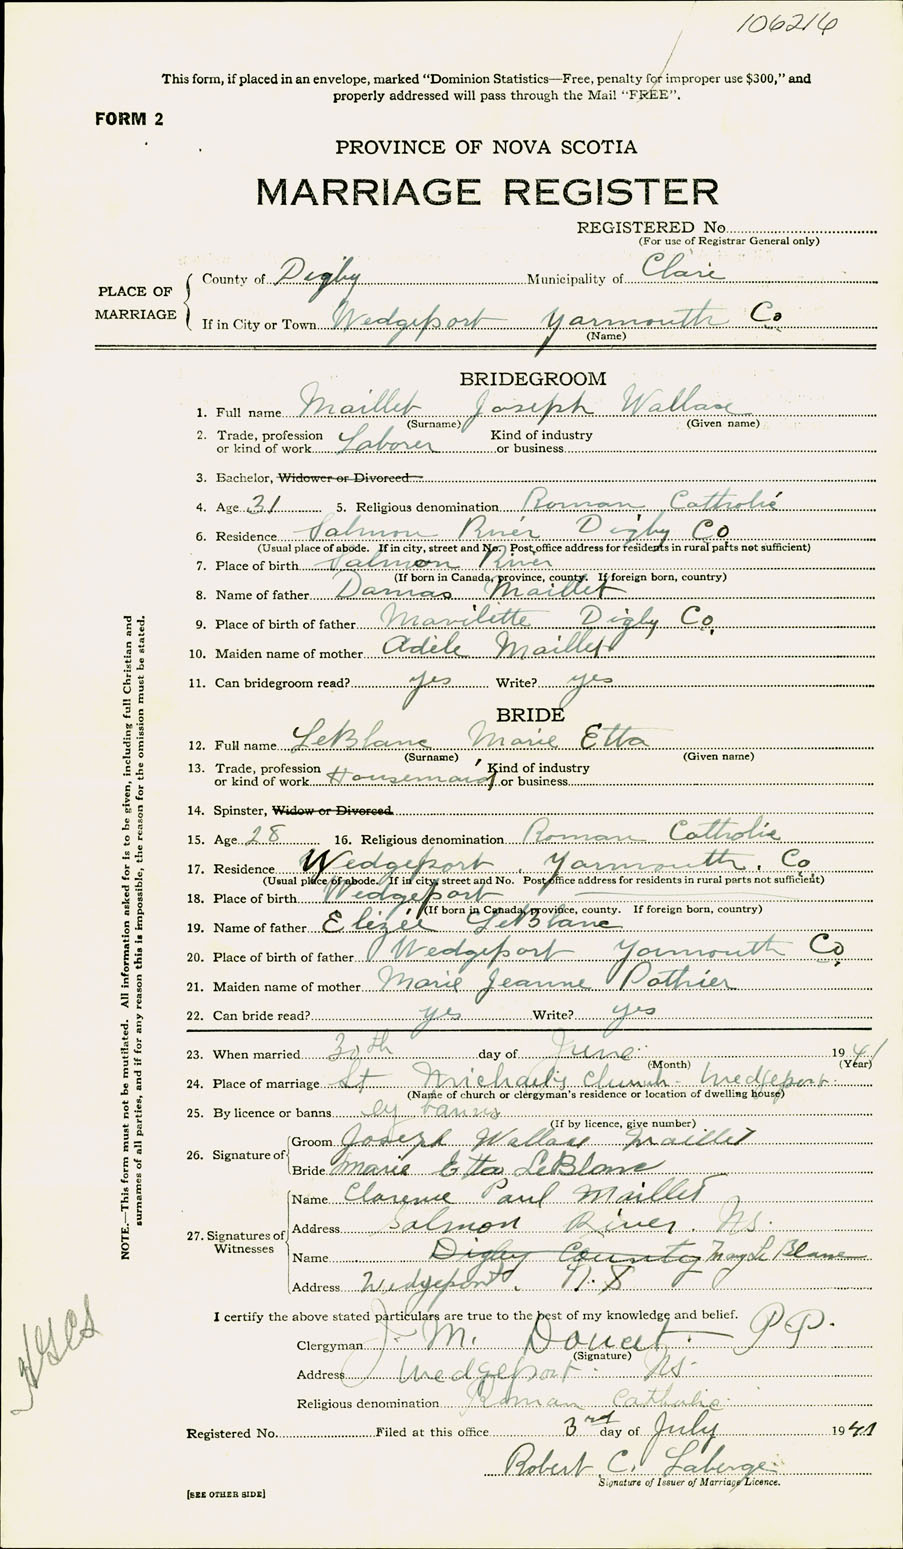 106216
This form, if placed in an envelope, marked "Dominion Statistics—Free, penalty for improper use $300," and
properly addressed will pass through the Mail "FREE".
FORM 2
PROVINCE OF NOVA SCOTIA
MARRIAGE REGISTER
REGISTERED No.
(For use of Registrar General only)
PLACE OF MARRIAGE
County of Digby Municipality of Clare
If in City or Town Wedgeport Yarmouth Co
(Name)
BRIDEGROOM
1. Full name Maillet Joseph Wallace
(Surname) (Given name)
2. Trade, profession or kind of work Laborer Kind of industry or business
3. Bachelor, Widower or Divorced
4. Age 31 5. Religious denomination Roman Catholic
6. Residence Salmon River Digby Co
(Usual place of abode. If in city, street and No. Post office address for residents in rural parts not sufficient)
7. Place of birth Salmon River
(If born in Canada, province, county. If foreign born, country)
8. Name of father Damas Maillet
9. Place of birth of father Mavilette Digby Co.
10. Maiden name of mother Adèle Maillet
11. Can bridegroom read? yes Write? yes
BRIDE
12. Full name LeBlanc Marie Etta
(Surname) (Given name)
13. Trade, profession or kind of work Housemaid Kind of industry or business
14. Spinster, Widow or Divorced
15. Age 28 16. Religious denomination Roman Catholic
17. Residence Wedgeport, Yarmouth, Co
(Usual place of abode. If in city, street and No. Post office address for residents in rural parts not sufficient)
18. Place of birth Wedgeport
(If born in Canada, province, county. If foreign born, country)
19. Name of father Elizée LeBlanc
20. Place of birth of father Wedgeport Yarmouth Co.
21. Maiden name of mother Marie Jeanne Pothier
22. Can bride read? yes Write? yes
23. When married 30th day of June 1941
(Month) (Year)
24. Place of marriage St Michael's Church - Wedgeport.
(Name of church or clergyman's residence or location of dwelling house)
25. By licence or banns by banns
(If by licence, give number)
26. Signature of Groom Joseph Wallace Maillet
Bride Marie Etta LeBlanc
27. Signatures of Witnesses
Name Clarence Paul Maillet
Address Salmon River. Ns.
Name Digby County May Le Blanc
Address Wedgeport, N.S
I certify the above stated particulars are true to the best of my knowledge and belief.
Clergyman J. M. Doucet. P.P.
(Signature)
Address Wedgeport. Ns.
Religious denomination Roman Catholic.
Registered No. Filed at this office 3rd day of July 1941
Robert C. Laberge
Signature of Issuer of Marriage Licence.
[SEE OTHER SIDE]
NOTE.—This form must not be mutilated. All information asked for is to be given, including full Christian and
surnames of all parties, and if for any reason this is impossible, the reason for the omission must be stated.